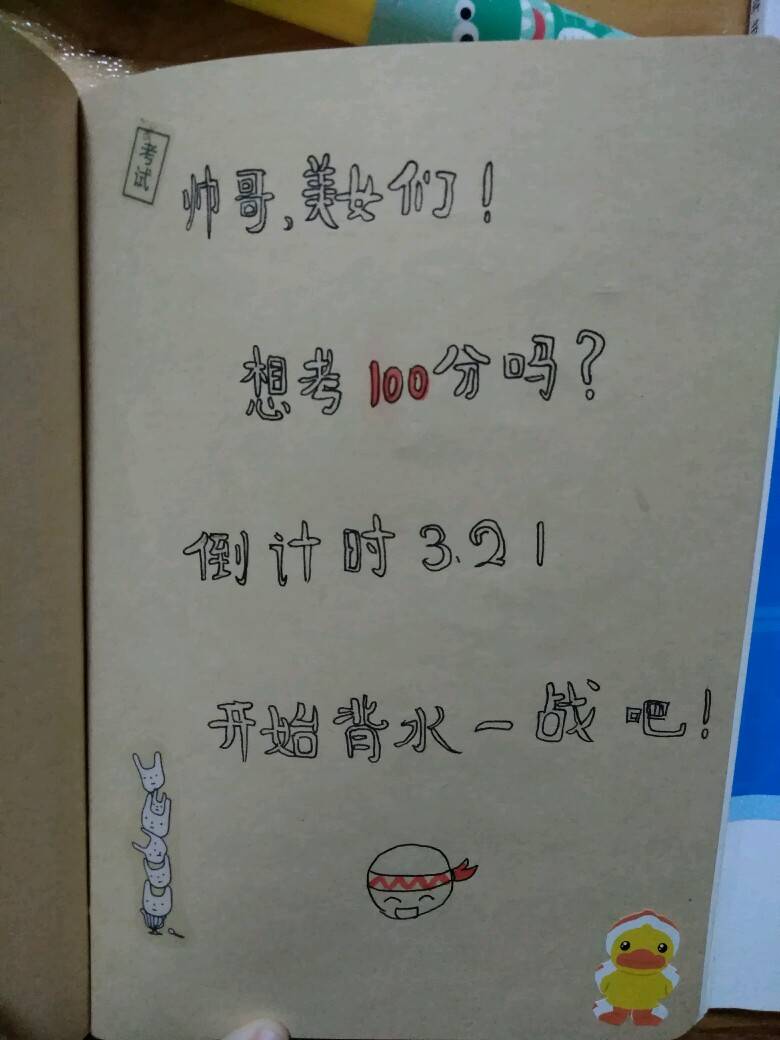 考试
帅哥,美女们!
想考100分吗?
倒计时3.21
开始背水一战吧!